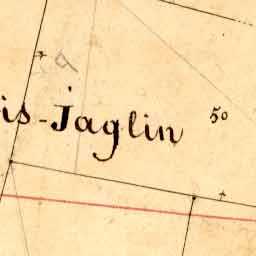 a
is-Jaglin 50